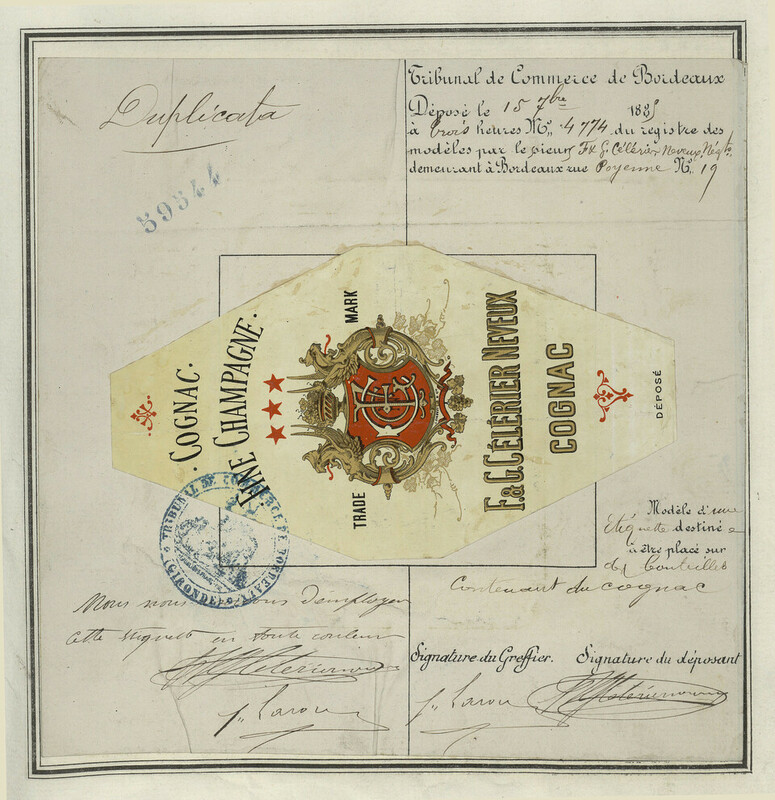 Duplicata
59544
Tribunal de Commerce de Bordeaux
Déposé le 15 7bre 188
à trois heures No. 4774 du registre des
modèles par le sieurs F & G. Célérier Neveux Négts.
demeurant à Bordeaux rue Poyenne No. 19
. COGNAC .
FINE CHAMPAGNE .
TRADE MARK
F. & G. CÉLÉRIER NEVEUX
COGNAC
DÉPOSÉ
TRIBUNAL DE COMMERCE DE BORDEAUX
(GIRONDE)
Modèle d'une
étiquette destiné e
à être placé sur
des bouteilles
contenant du cognac
Nous nous d'employer
cette étiquette en toute couleur
Signature du Greffier. Signature du déposant